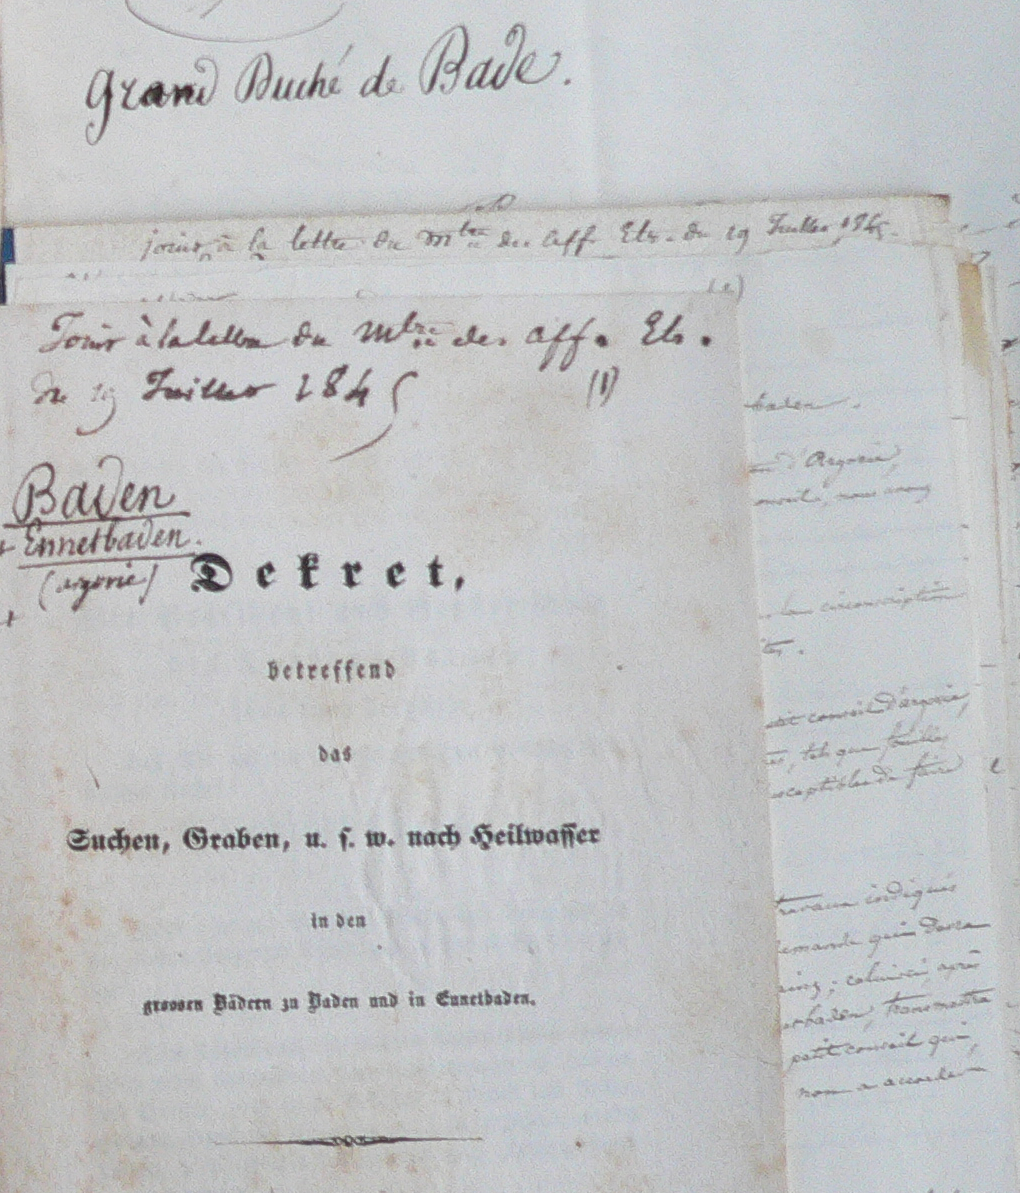 Grand Duché de Bade.
joint à la lettre du Mtre des Aff. Etr. du 19 Juillet 1845.
Joint à la lettre du Mtre des Aff. Etr.
du 19 Juillet 1845 (1)
Baden
+ Ennetbaden.
(argovie)
Dekret,
betreffend
das
Suchen, Graben, u. s. w. nach Heilwasser
in den
grossen Bädern zu Baden und in Ennetbaden.
baden.
d'Argovie,
conseil, nous avons
la circonscription
petit conseil d'argovie,
tels que fouilles
susceptibles de faire
travaux indiqués
demande qui devra
; celui-ci, après
transmettra
petit conseil qui,
non a accorder